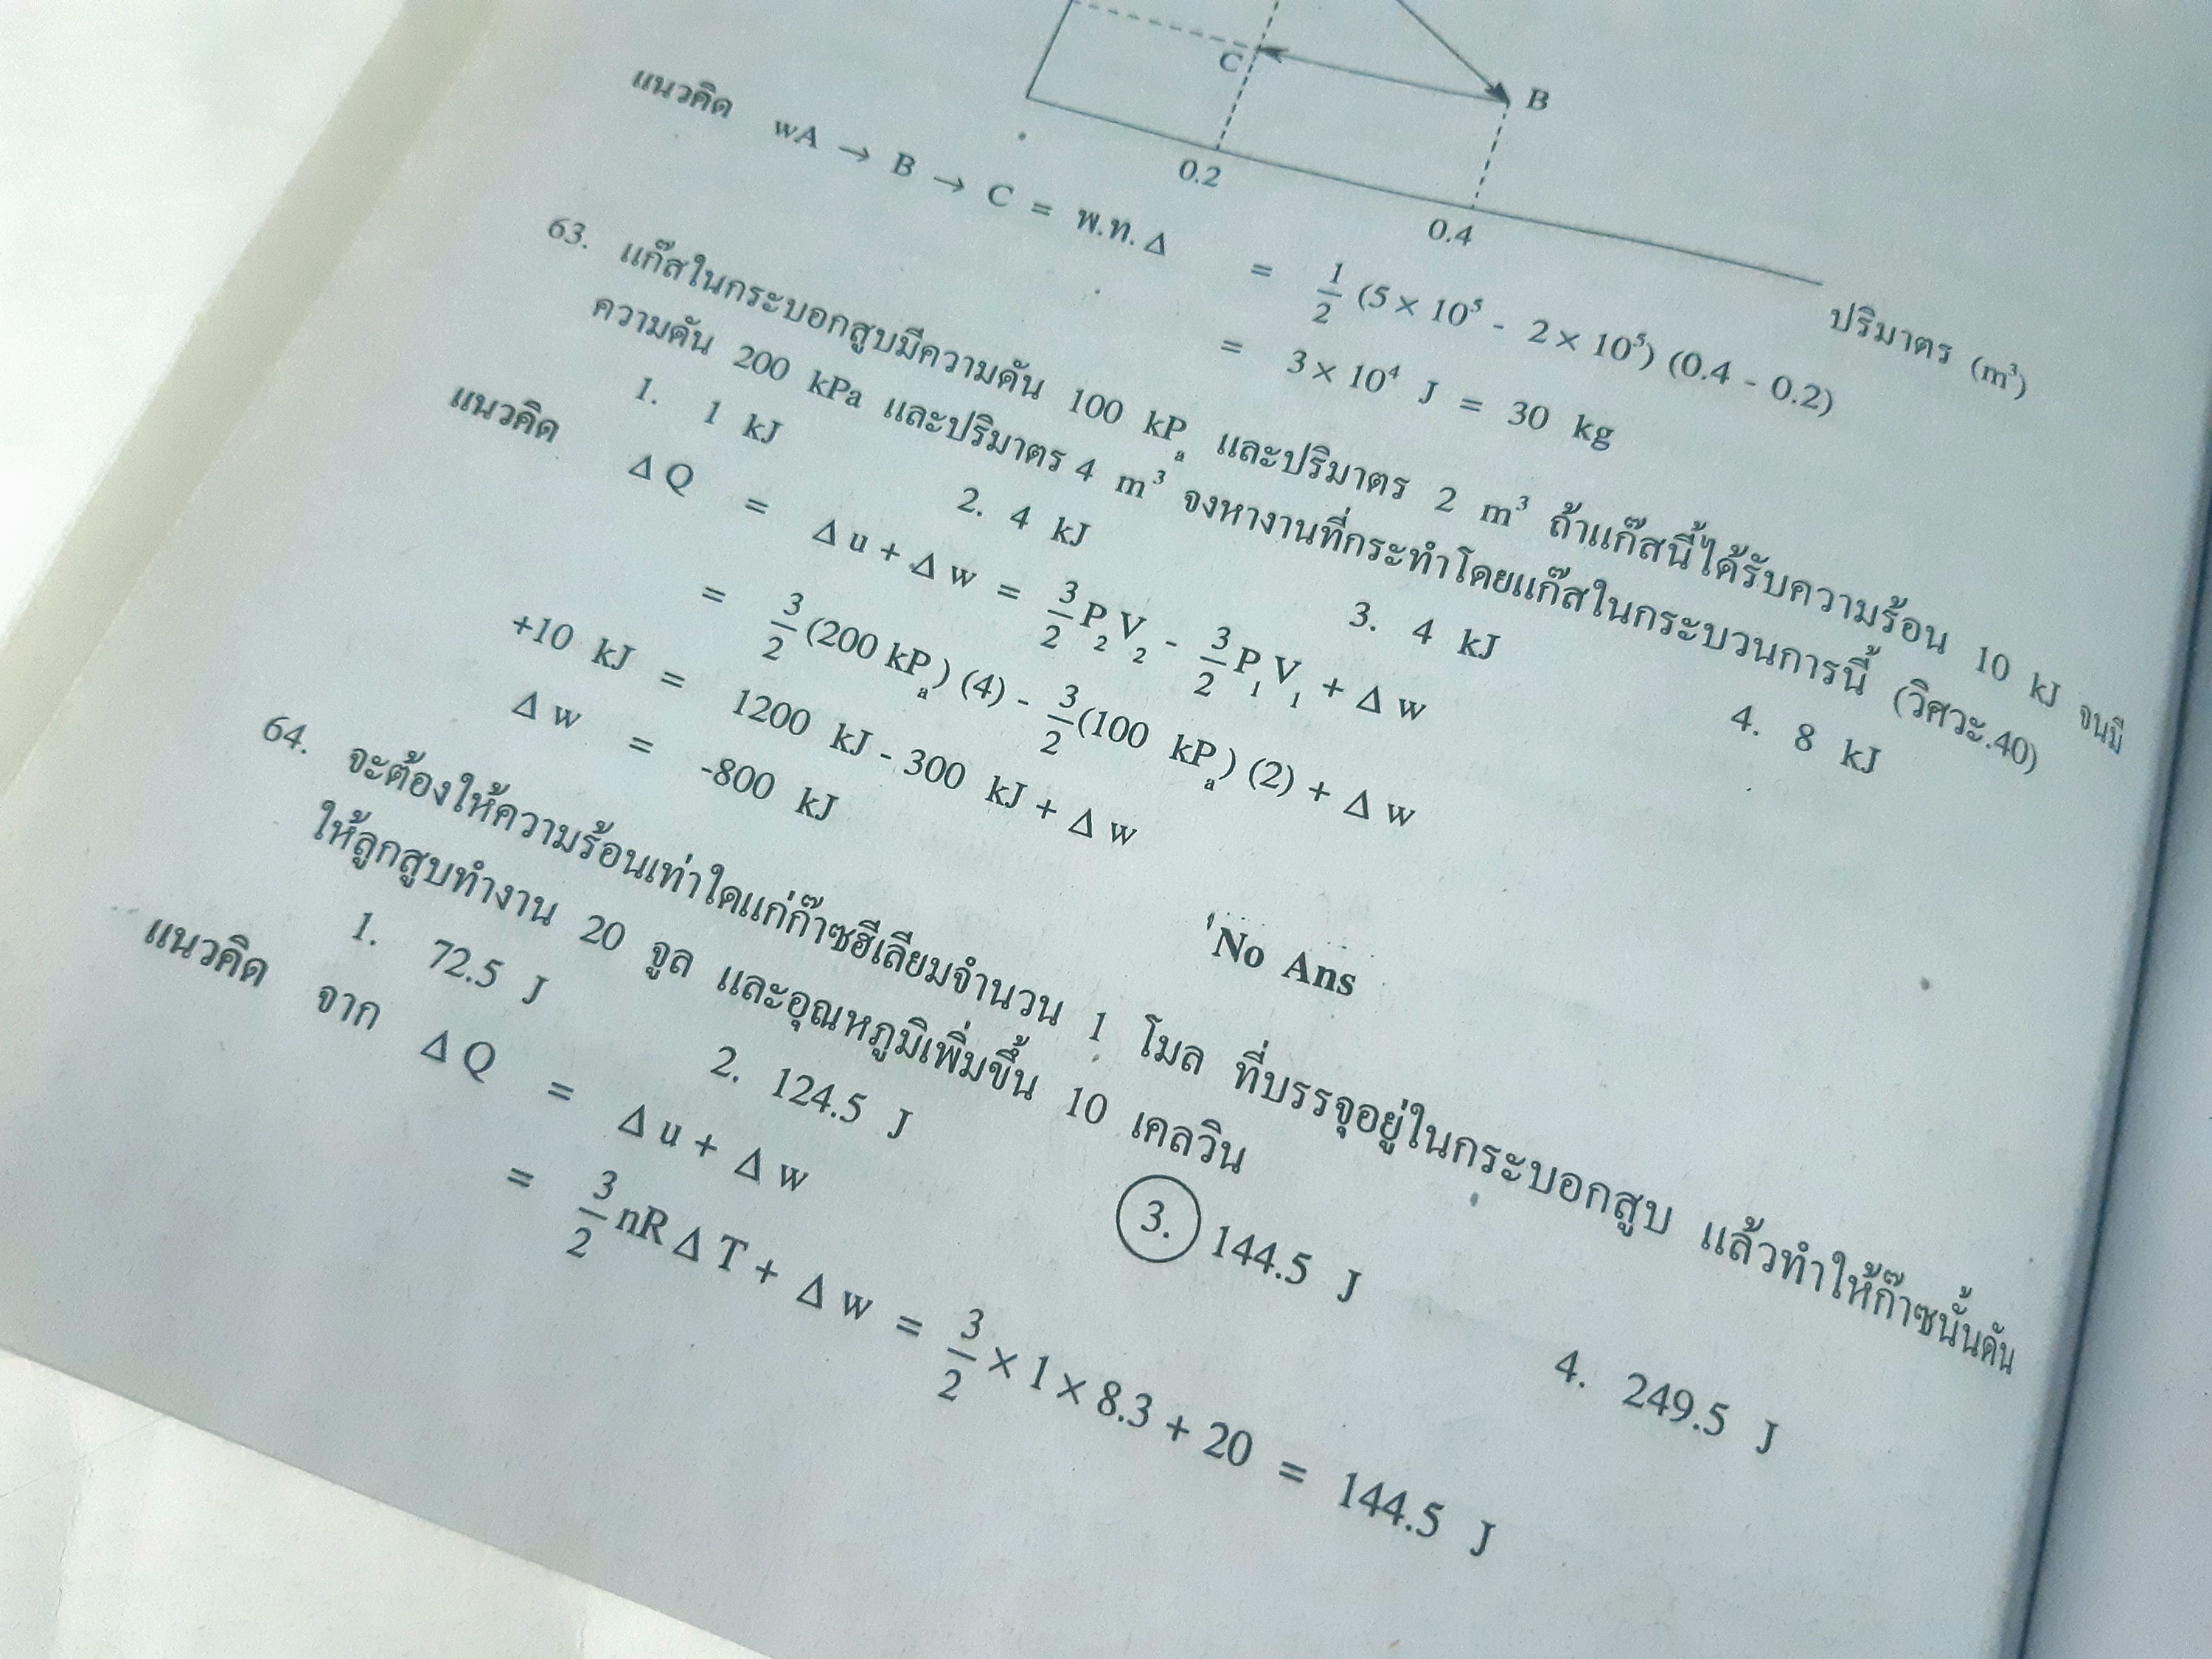 C
B
0.2
0.4
ปริมาตร (m³)
แนวคิด wA → B → C = พ.ท. Δ = 1/2 (5 × 10⁵ - 2 × 10⁵) (0.4 - 0.2)
= 3 × 10⁴ J = 30 kg
63. แก๊สในกระบอกสูบมีความดัน 100 kPₐ และปริมาตร 2 m³ ถ้าแก๊สนี้ได้รับความร้อน 10 kJ จนมี
ความดัน 200 kPa และปริมาตร 4 m³ จงหางานที่กระทำโดยแก๊สในกระบวนการนี้ (วิศวะ.40)
1. 1 kJ 2. 4 kJ 3. 4 kJ 4. 8 kJ
แนวคิด Δ Q = Δ u + Δ w = 3/2 P₂V₂ - 3/2 P₁V₁ + Δ w
= 3/2 (200 kPₐ) (4) - 3/2 (100 kPₐ) (2) + Δ w
+10 kJ = 1200 kJ - 300 kJ + Δ w
Δ w = -800 kJ
No Ans
64. จะต้องให้ความร้อนเท่าใดแก่ก๊าซฮีเลียมจำนวน 1 โมล ที่บรรจุอยู่ในกระบอกสูบ แล้วทำให้ก๊าซนั้นดัน
ให้ลูกสูบทำงาน 20 จูล และอุณหภูมิเพิ่มขึ้น 10 เคลวิน
1. 72.5 J 2. 124.5 J 3. 144.5 J 4. 249.5 J
แนวคิด จาก Δ Q = Δ u + Δ w
= 3/2 nR Δ T + Δ w = 3/2 × 1 × 8.3 + 20 = 144.5 J